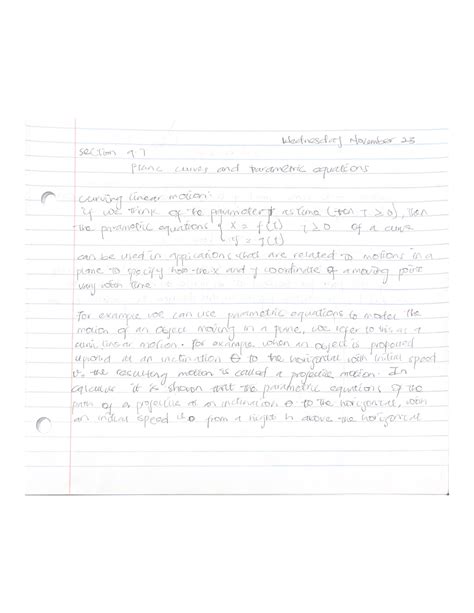 Wednesday November 23
section 9.7
Plane curves and Parametric equations
curving linear motion:
if we think of the parameter t as time (then t ≥ 0), then
the parametric equations { x = f(t) t ≥ 0 of a curve
y = g(t)
can be used in applications that are related to motions in a
plane to specify how the x and y coordinate of a moving point
vary with time.
For example we can use parametric equations to model the
motion of an object moving in a plane, we refer to this as a
linear motion. For example, when an object is
upward at an inclination θ to the horizontal with initial speed
the resulting motion is called a projectile motion. In
calculus it is shown that the parametric equations of the
path of a projectile at an inclination θ to the horizontal, with
an initial speed from a height h above the horizontal